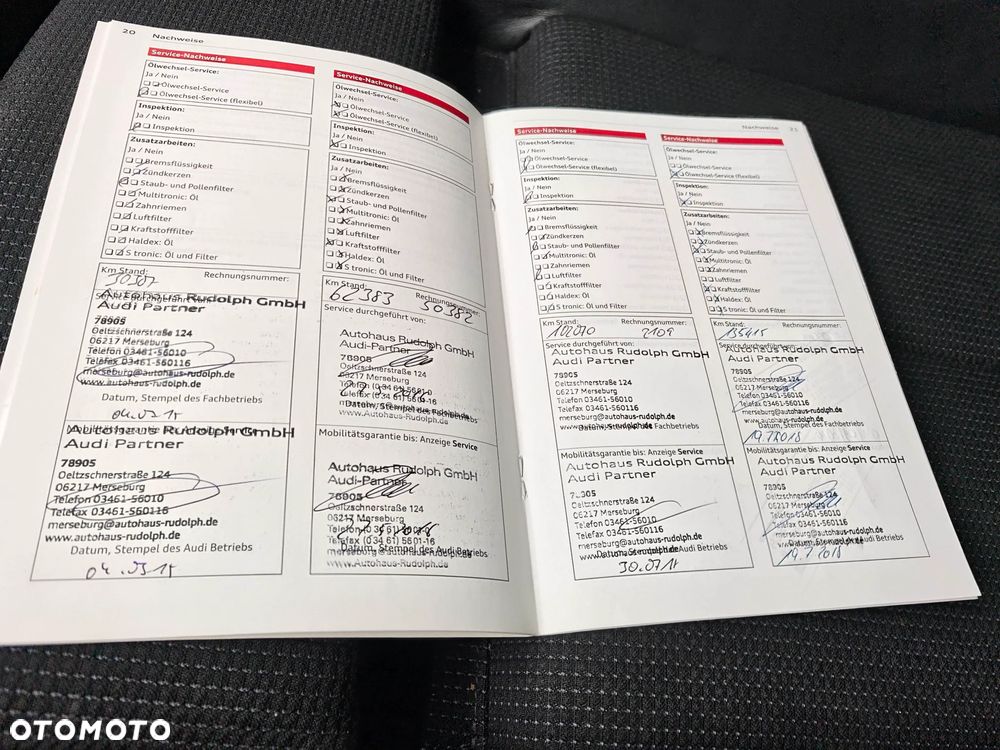 20 Nachweise
Service-Nachweise
Ölwechsel-Service:
Ja / Nein
Ölwechsel-Service
Ölwechsel-Service (flexibel)
Inspektion:
Ja / Nein
Inspektion
Zusatzarbeiten:
Ja / Nein
Bremsflüssigkeit
Zündkerzen
Staub- und Pollenfilter
Multitronic: Öl
Zahnriemen
Luftfilter
Kraftstofffilter
Haldex: Öl
S tronic: Öl und Filter
Km Stand: Rechnungsnummer:
30382
Autohaus Rudolph GmbH
Audi Partner
78905
Oeltzschnerstraße 124
06217 Merseburg
Telefon 03461-56010
Telefax 03461-560116
merseburg@autohaus-rudolph.de
www.autohaus-rudolph.de
Datum, Stempel des Fachbetriebs
Autohaus Rudolph GmbH
Audi Partner
78905
Oeltzschnerstraße 124
06217 Merseburg
Telefon 03461-56010
Telefax 03461-560116
merseburg@autohaus-rudolph.de
www.autohaus-rudolph.de
Datum, Stempel des Audi Betriebs
Service-Nachweise
Ölwechsel-Service:
Ja / Nein
Ölwechsel-Service
Ölwechsel-Service (flexibel)
Inspektion:
Ja / Nein
Inspektion
Zusatzarbeiten:
Ja / Nein
Bremsflüssigkeit
Zündkerzen
Staub- und Pollenfilter
Multitronic: Öl
Zahnriemen
Luftfilter
Kraftstofffilter
Haldex: Öl
S tronic: Öl und Filter
Km Stand: Rechnungsnummer:
30382
Service durchgeführt von:
Autohaus Rudolph GmbH
Audi-Partner
78905
Oeltzschnerstraße 124
06217 Merseburg
www.Autohaus-Rudolph.de
Mobilitätsgarantie bis: Anzeige Service
Autohaus Rudolph GmbH
Audi-Partner
78905
Oeltzschnerstraße 124
06217 Merseburg
Telefon (0 34 61) 5601-0
Telefax (0 34 61) 5601-16
Datum, Stempel des Audi Betriebs
www.Autohaus-Rudolph.de
Nachweise 21
Service-Nachweise
Ölwechsel-Service:
Ja / Nein
Ölwechsel-Service
Ölwechsel-Service (flexibel)
Inspektion:
Ja / Nein
Inspektion
Zusatzarbeiten:
Ja / Nein
Bremsflüssigkeit
Zündkerzen
Staub- und Pollenfilter
Multitronic: Öl
Zahnriemen
Luftfilter
Kraftstofffilter
Haldex: Öl
S tronic: Öl und Filter
Km Stand: Rechnungsnummer:
2109
Service durchgeführt von:
Autohaus Rudolph GmbH
Audi Partner
78905
Oeltzschnerstraße 124
06217 Merseburg
Telefon 03461-56010
Telefax 03461-560116
merseburg@autohaus-rudolph.de
Datum, Stempel des Fachbetriebs
Mobilitätsgarantie bis: Anzeige Service
Autohaus Rudolph GmbH
Audi Partner
Oeltzschnerstraße 124
06217 Merseburg
Telefon 03461-56010
Telefax 03461-560116
merseburg@autohaus-rudolph.de
Datum, Stempel des Audi Betriebs
Service-Nachweise
Ölwechsel-Service:
Ja / Nein
Ölwechsel-Service
Ölwechsel-Service (flexibel)
Inspektion:
Ja / Nein
Inspektion
Zusatzarbeiten:
Ja / Nein
Bremsflüssigkeit
Zündkerzen
Staub- und Pollenfilter
Multitronic: Öl
Zahnriemen
Luftfilter
Kraftstofffilter
Haldex: Öl
S tronic: Öl und Filter
Km Stand: Rechnungsnummer:
135415
Service durchgeführt von:
Autohaus Rudolph GmbH
Audi Partner
78905
Oeltzschnerstraße 124
06217 Merseburg
Telefon 03461-56010
Telefax 03461-560116
merseburg@autohaus-rudolph.de
Datum, Stempel des Fachbetriebs
19.7.2018
Mobilitätsgarantie bis: Anzeige Service
Autohaus Rudolph GmbH
Audi Partner
78905
Oeltzschnerstraße 124
06217 Merseburg
Telefon 03461-56010
Telefax 03461-560116
merseburg@autohaus-rudolph.de
Datum, Stempel des Audi Betriebs
19.7.2018
OTOMOTO